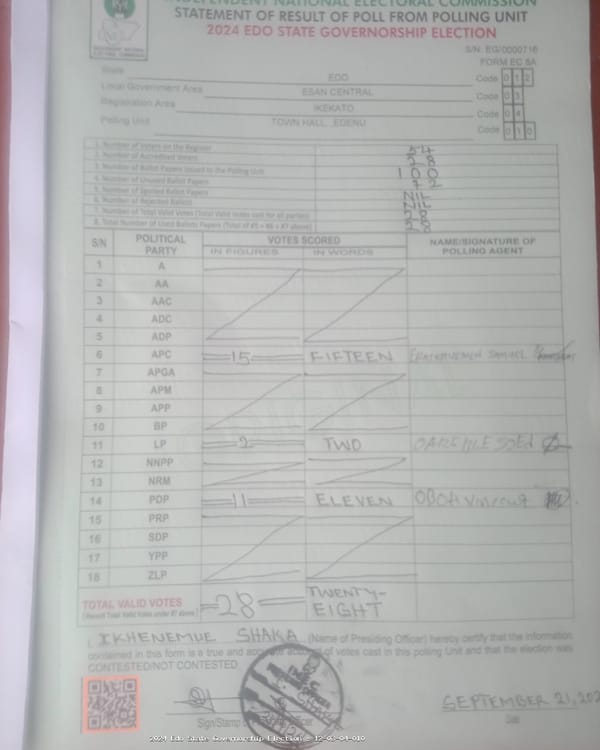 INDEPENDENT NATIONAL ELECTORAL COMMISSION
STATEMENT OF RESULT OF POLL FROM POLLING UNIT
2024 EDO STATE GOVERNORSHIP ELECTION
S/N: EG/0000716
FORM EC 8A
State EDO Code 0 1 2
Local Government Area ESAN CENTRAL Code 0 3
Registration Area IKEKATO Code 0 4
Polling Unit TOWN HALL, EDENU Code 0 1 0
1. Number of Voters on the Register 54
2. Number of Accredited Voters 28
3. Number of Ballot Papers Issued to the Polling Unit 100
4. Number of Unused Ballot Papers 72
5. Number of Spoiled Ballot Papers NIL
6. Number of Rejected Ballots NIL
7. Number of Total Valid Votes (Total Valid Votes cast for all parties) 28
8. Total Number of Used Ballots Papers (Total of #5 + #6 + #7 above) 28
S/N POLITICAL PARTY VOTES SCORED NAME/SIGNATURE OF POLLING AGENT
IN FIGURES IN WORDS
1 A
2 AA
3 AAC
4 ADC
5 ADP
6 APC 15 FIFTEEN SAMUEL
7 APGA
8 APM
9 APP
10 BP
11 LP 2 TWO
12 NNPP
13 NRM
14 PDP 11 ELEVEN
15 PRP
16 SDP
17 YPP
18 ZLP
TOTAL VALID VOTES 28 TWENTY-EIGHT
I, IKHENEMUE SHAKA (Name of Presiding Officer) hereby certify that the information
contained in this form is a true and accurate account of votes cast in this polling Unit and that the election was
CONTESTED/NOT CONTESTED.
SEPTEMBER 21, 202
Sign/Stamp of Presiding Officer Date
2024 Edo State Governorship Election - 12-03-04-010